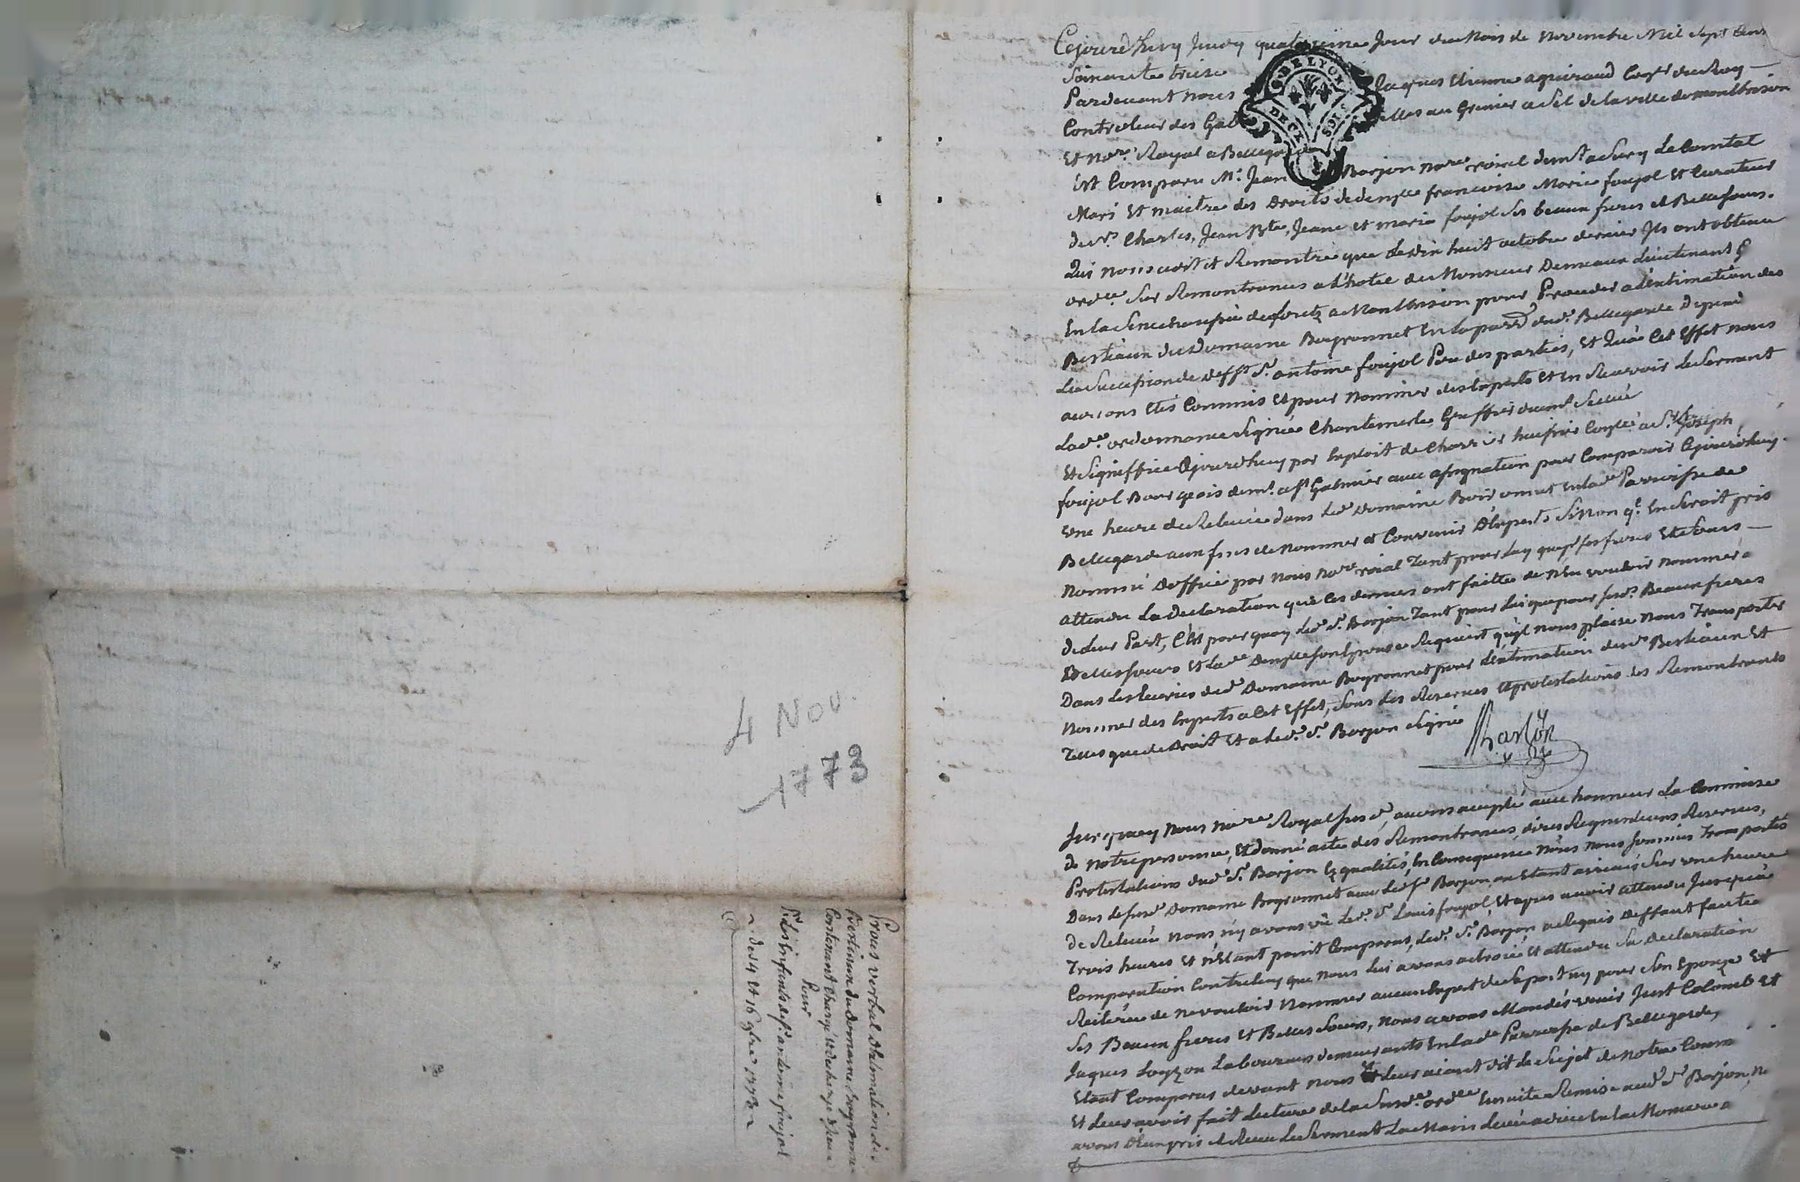 4 Nov.
1773
Procès verbal d'Estimation des
Bestiaux du domaine Boyronnet
Contenant charge et decharge d'iceux
Pour
Les Enfants de Sr. antoine foujol
des 4 et 16 9bre 1773
Cejourd'huy Jeudy quatrieme Jour du Mois de Novembre Mil Sept Cens
Soixante treize
Pardevant nous Jaques Etienne Coner. du Roy
Controleur des Gabelles au Grenier a Sel de la ville de montbrison
Et Nore. Royal a Bellegarde
G. DE LYON
DEUX SOLS
Est Comparu Me. Jean Borjon Nore. roial demt. a Sury Le Comtal
Mari Et maitre des Droits de demlle francoise Marie foujol Et Curateur
de Srs. Charles, Jean Bte, Jeane et maria foujol Ses beaux freres et Bellesoeurs.
Qui nous a dit et Remontré que le dix huit octobre dernier Ils ont obtenu
ordce. Sur Remontrances a l'hotel de Monsieur Lieutenant
En la Senechaussée de forez a Montbrison pour Proceder a l'estimation des
Bestiaux du Domaine Boyronnet En la parse. dud. Bellegarde Depend.
La Succession de defft. Sr. antoine foujol Pere des parties, Et Qu'a Cet Effet nous
aurions Etés Commis Et pour Nommer des Experts Et En Recevoir Le Serment
Lade. ordonnance Signée Chantemerle Greffier Scellé
Et Signiffiée Ajourd'huy par Exploit de Charrier huissier a Sr. Joseph
foujol Bourgeois demt. a St. Galmier avec assignation pour Comparoir Cejourd'huy
Une heure de Relevée dans led. Domaine Boironnet En lade. Parroisse de
Bellegarde aux fins de Nommer et Convenir D'Experts Sinon qu'il En Seroit pris
Nommé D'office par Nous Nore. roial Tant pour Luy que pr. ses freres Et Soeurs
attendu La declaration que Ces derniers ont faittes de N'En vouloir Nommer
de leur Part, C'est pourquoy led. Sr. Borjon Tant pour Lui que pour sesd. Beaux freres
Et Belles soeurs Et lade. Demlle son Epouse Requiert qu'il nous plaise Nous Transporter
Dans les Ecuries dud. Domaine Boyronnet pour L'estimation desd. Bestiaux Et
Nommer des Experts a Cet Effet, Sous les Reserves Et protestations des Remontrants
Telles que de Droit Et a led. Sr. Borjon Signé
Surquoy Nous Nore. Royal Susd., avons accepté avec honneur La Commise
de Notre personne, Et donné acte des Remontrances, dires Requisitions Reserves,
Protestations dud. Sr. Borjon Es qualités, En Consequence Nous Nous Sommes Transportés
Dans le susd. Domaine Boyronnet avec led. Sr. Borjon ou Etant arrivés Sur une heure
de Relevée Nous n'y avons vû led. Sr. Louis foujol, Et apres avoir attendu Jusqu'a
Trois heures Et n'Etant point Comparus, led. Sr. Borjon a Requis Deffaut faute de
Comparution Contre luy que Nous Lui avons octroié Et attendu Sa Declaration
Reiterée de ne vouloir Nommer aucun Expert de Sa part ny pour Son Epouze Et
Ses Beaux freres Et Belles Soeurs, Nous avons Mandés venir Just Colomb Et
Jaques Loyzon Laboureurs demeurants En lade. Parroisse de Bellegarde,
Etant Comparus devant Nous Et leur aiant dit le Sujet de Notre Comm
Et Leur avoir fait lecture de la Susde. ordce. Ensuite Remise aud. Sr. Borjon, N
avons d'Eux pris et Reçu Le Serment La Main Levée a dieu En la Maniere a